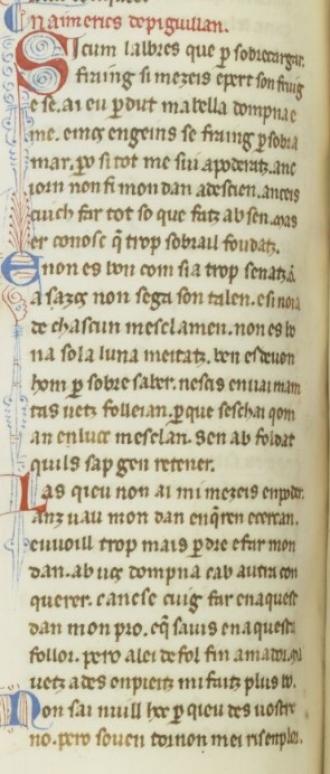 N aimerics de piguillan.
Sicum lalbres que p sobrecargar.
fraing si mezeis e pert son frug
e se. ai eu pdut ma bella dompna e
me. e mos engeins se fraing p sobra
mar. po si tot me sui apoderatz. anc
iorn non fi mon dan ad escien. anceis
cuich far tot so que fatz ab sen. mas
er conosc q̃ trop sobrail foudatz.
E non es bon com sia trop senatz.
a sazos non sega son talen. e si noia
de chascun mesclamen. non es bo
na sola luna meitatz. ben es deuon
hom p sobre saber. nescis en uai man
tas uetz folleian. p que seschai qom
an en luec mesclan. Sen ab foldat
quils sap gen retener.
Las qieu non ai mi mezeis en poder.
anz uau mon dan enq̃ren e cercan.
e uuoill trop mais pdre e far mon
dan. ab uos dompna cab autra con
querer. cancse cuig far en aquest
dan mon pro. e q̃ sauis en aquesta
follor. pero a lei de fol fin amador.
uetz ades on pieitz mi faitz plus bo.
Non sai nuill hoc p qieu des uostre
no. pero souen tornon mei ris en plor.